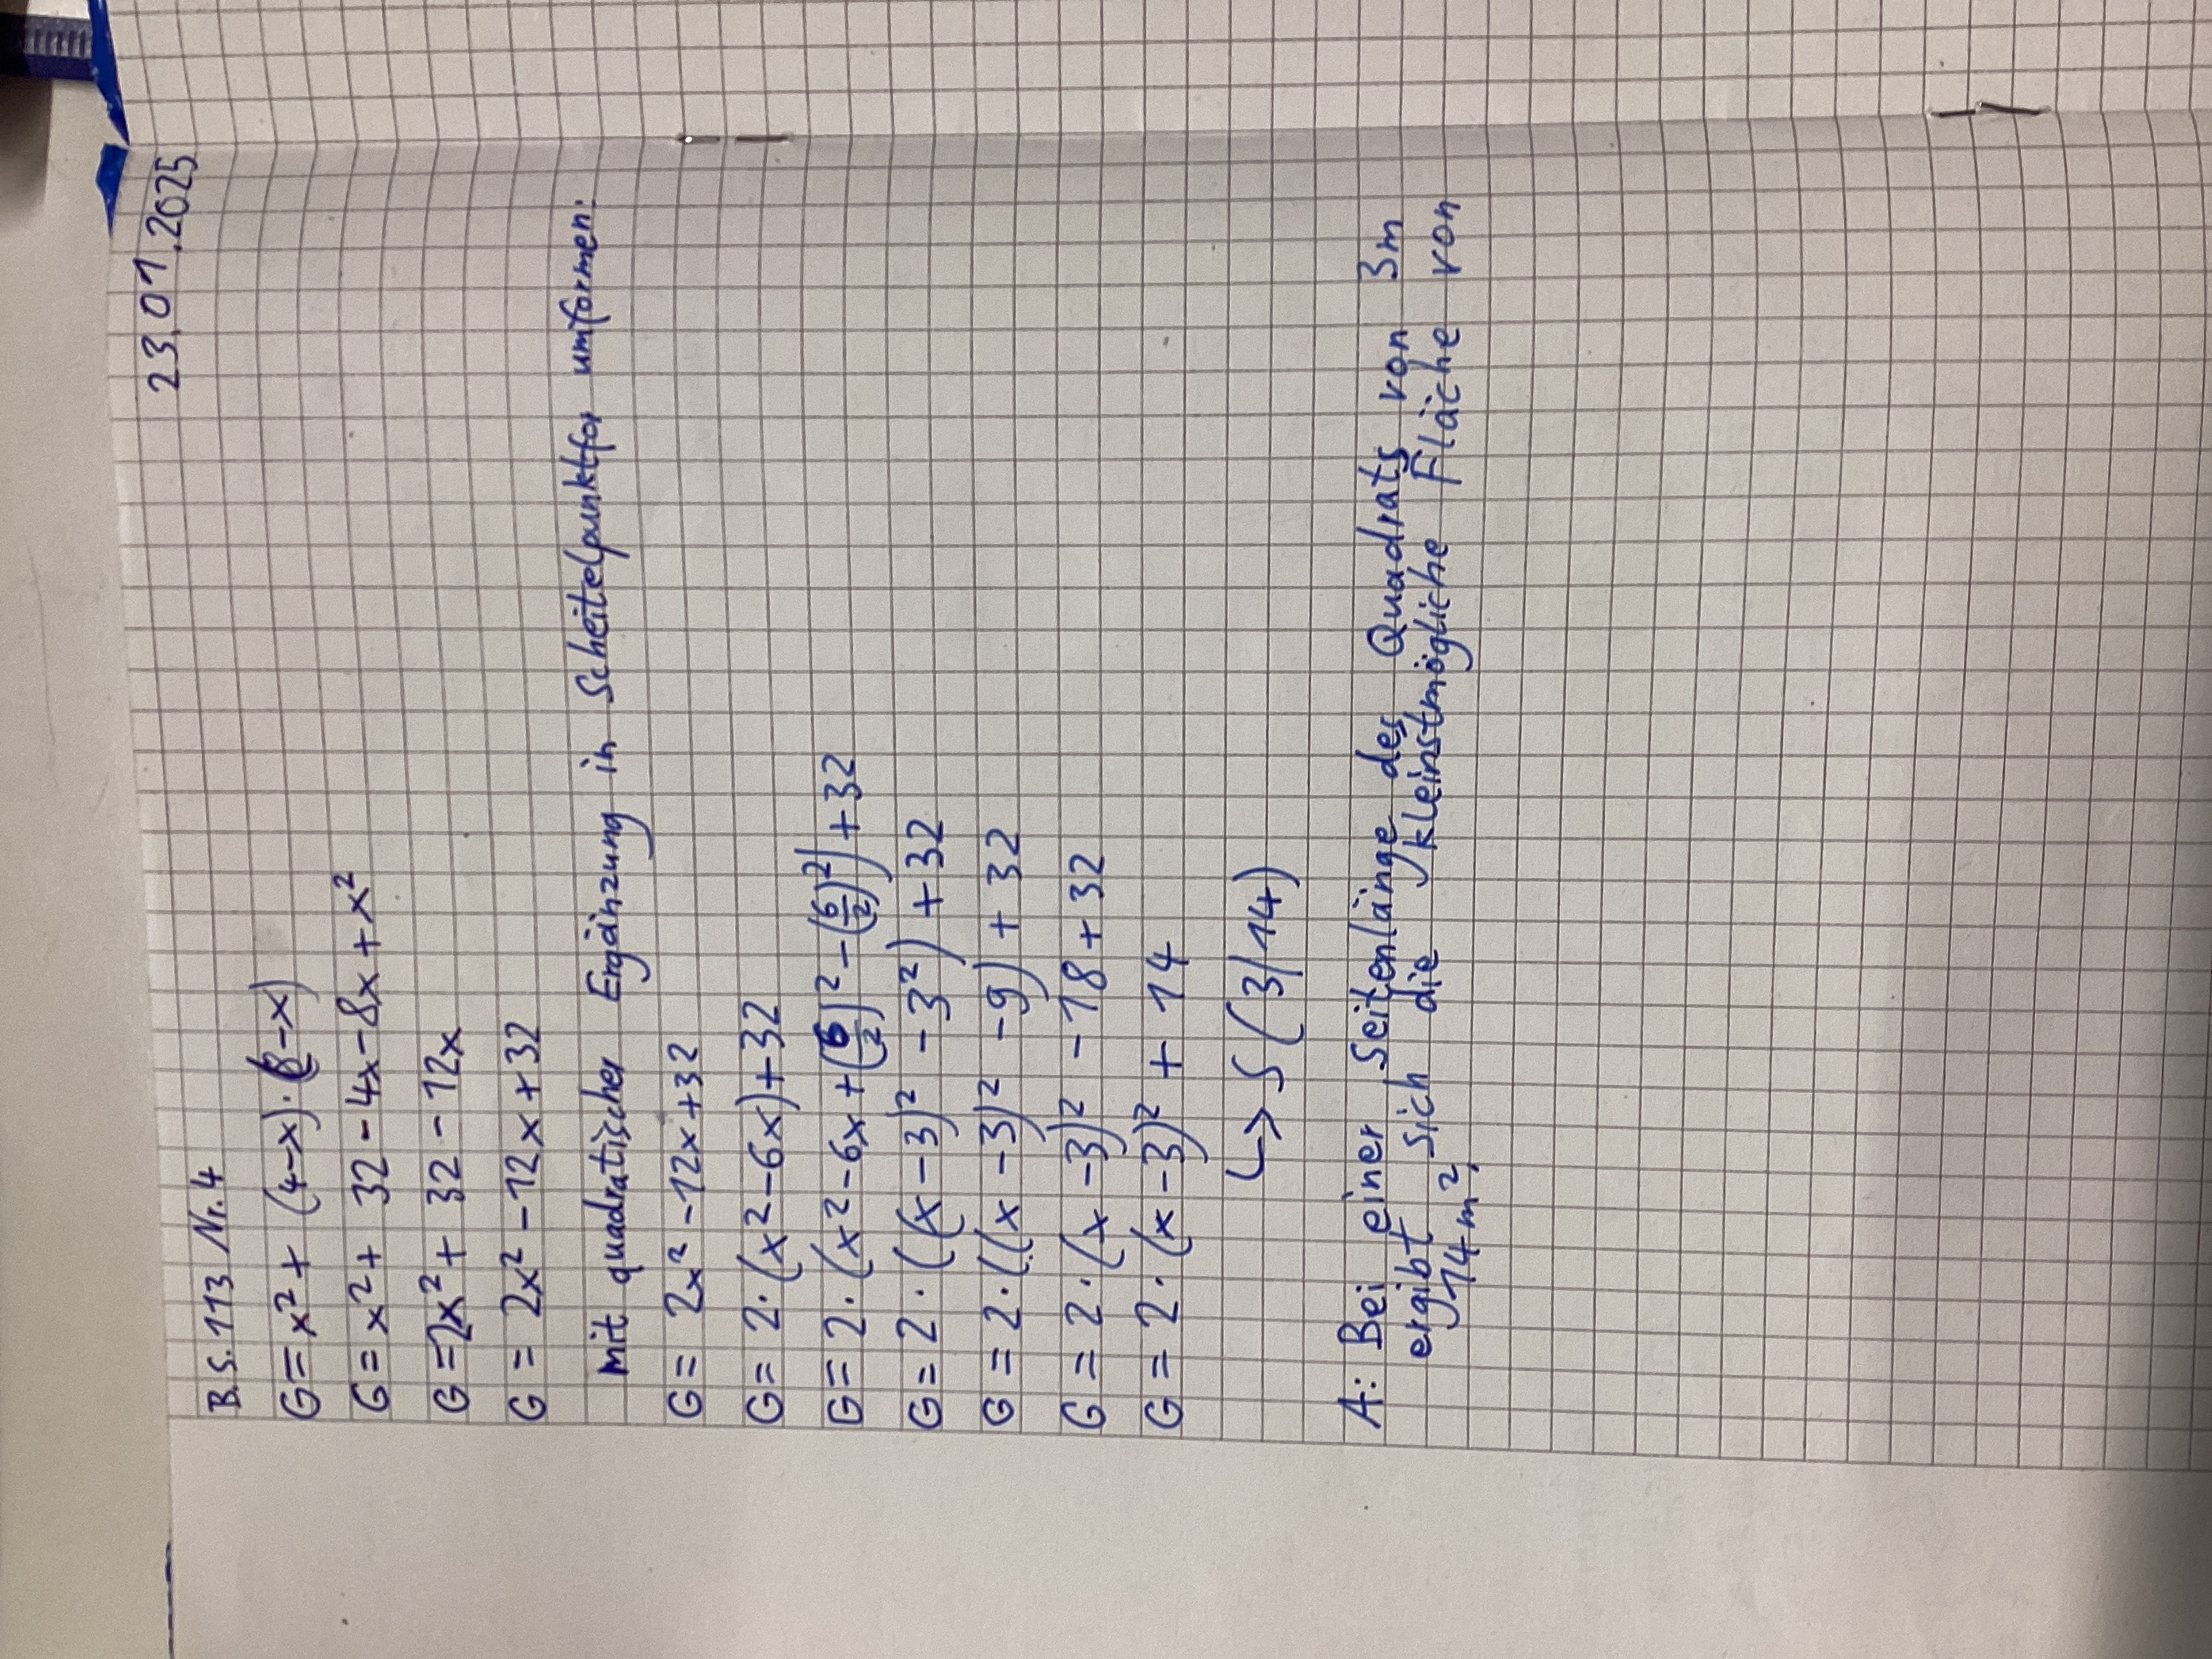 23.01.2025
B.S.113 Nr.4
G = x² + (4-x)·(8-x)
G = x² + 32 - 4x - 8x + x²
G = 2x² + 32 - 12x
G = 2x² - 12x + 32
mit quadratischer Ergänzung in Scheitelpunktfor umformen:
G = 2x² - 12x + 32
G = 2·(x² - 6x) + 32
G = 2·(x² - 6x + (6/2)² - (6/2)²) + 32
G = 2·((x - 3)² - 3²) + 32
G = 2·((x - 3)² - 9) + 32
G = 2·(x - 3)² - 18 + 32
G = 2·(x - 3)² + 14
↳ S (3/14)
A: Bei einer Seitenlänge des Quadrats von 3m
ergibt sich die kleinstmögliche Fläche von
14m².